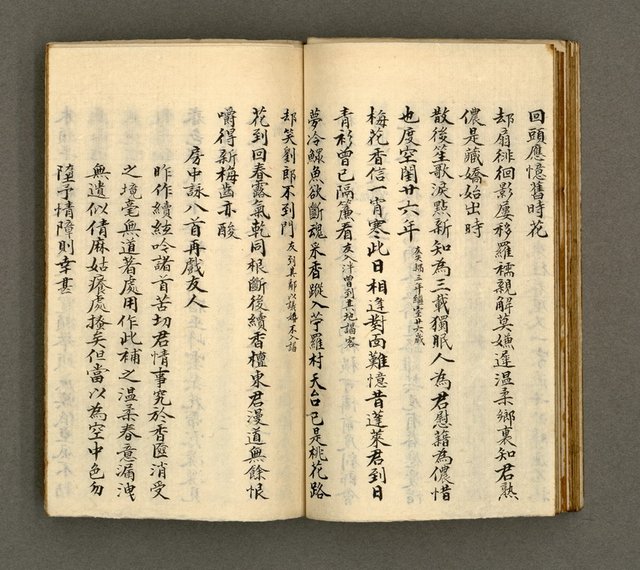 回頭應憶舊時花
却扇徘徊影屢移羅襦親解莫嫌遲温柔鄉裏知君熟
儂是藏嬌始出時
散後笙歌淚點新知為三載獨眠人為君慰藉為儂惜
也度空閨廿六年
梅花香信一宵寒此日相逢對面難憶昔蓬萊君到日
青衫曾已隔簾看友入泮曾到其地謁客
夢冷鰥魚欲斷魂采香蹤入苧羅村天台已是桃花路
却笑劉郎不到門友到其鄰以議婚不入謁
花到回春露氣乾同根斷後續香檀東君漫道無餘恨
嚼得新梅齒亦酸
房中詠八首再戲友人
昨作續絃吟諸首苦切君情事究於香匳消受
之境毫無道著處用作此補之温柔春意漏洩
無遺似倩麻姑癢處掻矣但當以為空中色勿
墮予情障則幸甚